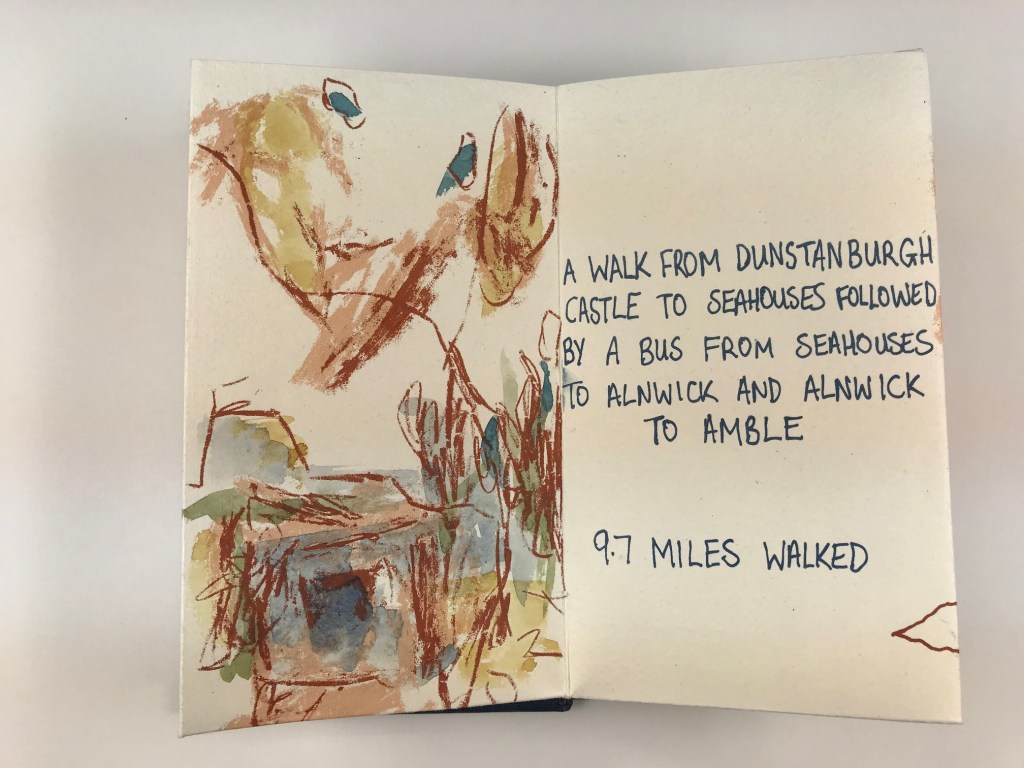 A WALK FROM DUNSTANBURGH
CASTLE TO SEAHOUSES FOLLOWED
BY A BUS FROM SEAHOUSES
TO ALNWICK AND ALNWICK
TO AMBLE
9.7 MILES WALKED